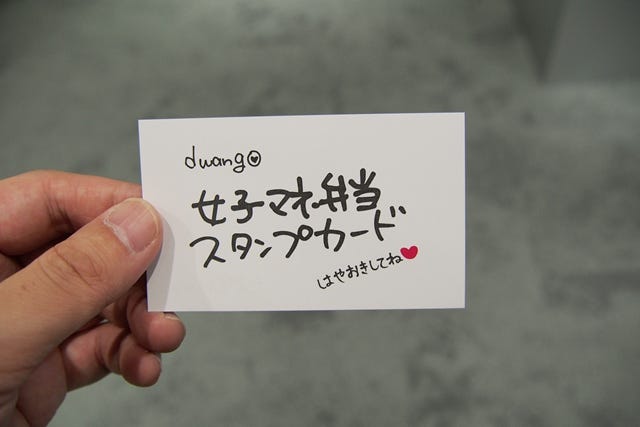 dwango
女子マネ弁当
スタンプカード
はやおきしてね